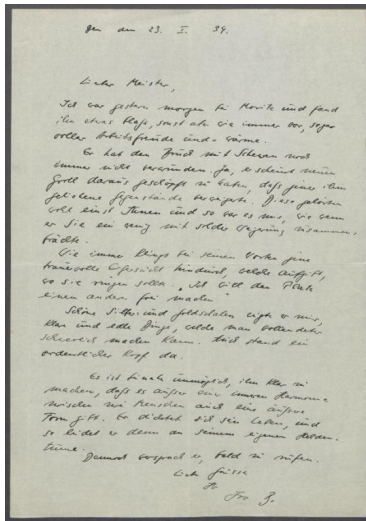 den 23. I. 34.
Lieber Meister,
Ich war gestern morgen bei Moritz und fand
ihn etwas blaß, sonst aber wie immer vor, sogar
voller Arbeitsfreude und -wärme.
Er hat den Bruch mit noch
immer nicht verwunden. Ja, er scheint neuen
Groll daraus geschöpft zu haben, daß jener ihm
geliehene Gegenstände verweigerte. Diese gehörten
wohl einst Ihnen und so war es mir, wie wenn
er Sie ein wenig mit solcher Weigerung zusammen-
brächte.
Wie immer klingt bei seinen Worten jene
trauervolle hindurch, welche
wo sie singen sollte. „Ich will den Platz
einem andern frei machen"
Schöne Silber- und Goldschalen zeigte er mir,
klar und edle Dinge, welche man vollendeter
schwerlich machen kann. Auch stand ein
ordentlicher Kopf da.
Es ist beinahe unmöglich, ihm klar zu
machen, daß es außer einer inneren Harmonie
zwischen uns Menschen auch eine äußere
Form gibt. Er dichtet sich sein Leben, und
so leidet er denn an seinem eigenen Helden-
tume.
Dennoch versprach er, bald zu rufen.
Liebe Grüsse
Ihr